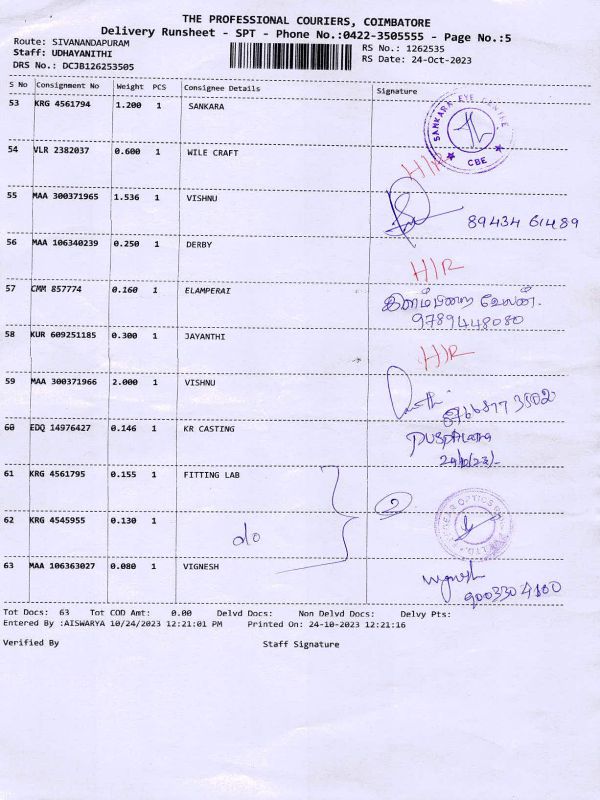 THE PROFESSIONAL COURIERS, COIMBATORE
Delivery Runsheet - SPT - Phone No.:0422-3505555 - Page No.:5
Route: SIVANANDAPURAM
RS No.: 1262535
Staff: UDHAYANITHI
RS Date: 24-Oct-2023
DRS No.: DCJB126253505
S No Consignment No Weight PCS Consignee Details Signature
53 KRG 4561794 1.200 1 SANKARA
SANKARA EYE CENTRE
CBE
54 VLR 2382037 0.600 1 WILE CRAFT H/R
55 MAA 300371965 1.536 1 VISHNU 89434 61489
56 MAA 106340239 0.250 1 DERBY H/R
57 CMM 857774 0.160 1 ELAMPERAI
9789448080
58 KUR 609251185 0.300 1 JAYANTHI H/R
59 MAA 300371966 2.000 1 VISHNU
60 EDQ 14976427 0.146 1 KR CASTING
61 KRG 4561795 0.155 1 FITTING LAB 2
62 KRG 4545955 0.130 1 do
63 MAA 106363027 0.080 1 VIGNESH Vignesh
9003304100
Tot Docs: 63 Tot COD Amt: 0.00 Delvd Docs: Non Delvd Docs: Delvy Pts:
Entered By :AISWARYA 10/24/2023 12:21:01 PM Printed On: 24-10-2023 12:21:16
Verified By Staff Signature